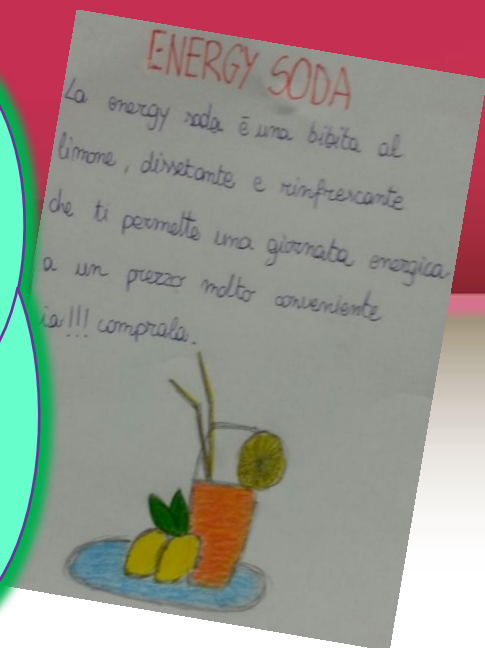 ENERGY SODA
La energy soda è una bibita al
limone, dissetante e rinfrescante
che ti permette una giornata energica
a un prezzo molto conveniente
!!! comprala.